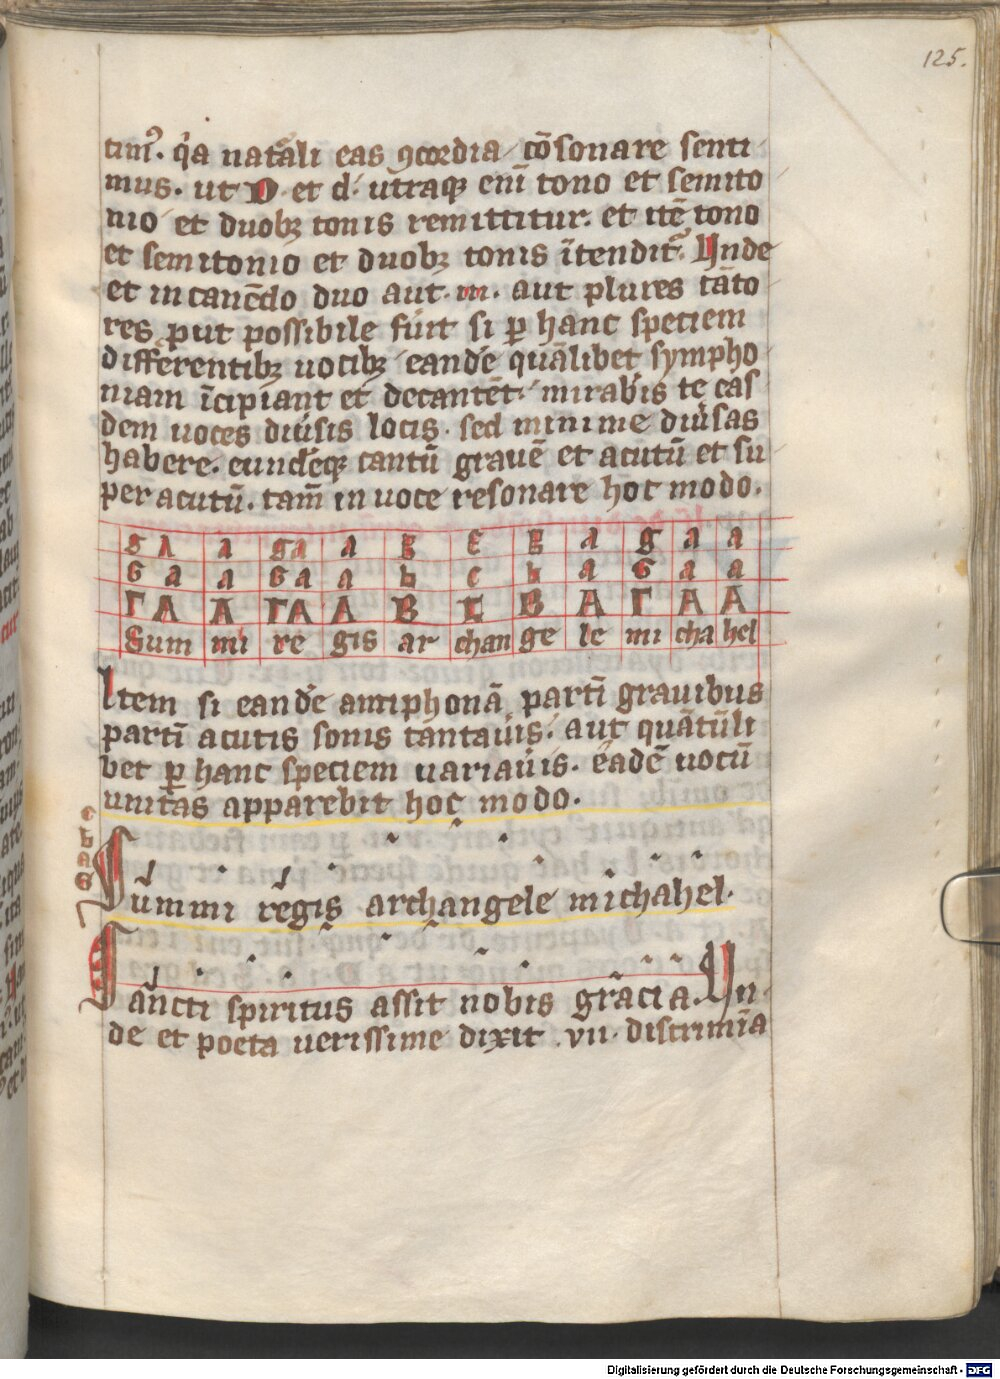 125.
timꝰ. q̇a natᷓali eas ꝯcordia cōsonare senti
mus. ut D. et d. utᷓraqꝫ eniᷓ tono et semito
nio et duobꝫ tonis remittitur. et itē tono
et semitonio et duobꝫ tonis ītenditᷣ. Unde
et in canēdo duo aut .iii. aut plures cāto
res ꝓut possibile fūıt si ꝑ hanc speciem
differentibꝫ uocibꝫ eandē quālibet sympho
niam īcipiant et decantēt. mirab'is te eas
dem uoces diu'sis locis. sed minime diu'sas
habere. eundēqꝫ cantū grauē et acutū et su
per acutū. tam̄ in uoce resonare hoc modo.
g a a ga a b c b a g a a
G a a G a a b c b a G a a
Γ A A ΓA A B C B A Γ A A
Sum mi re gis ar chan ge le mi cha hel
Item si eandē antiphonā partī grauibus
partī acutis sonis cantau'is. aut quātūli
bet ꝑ hanc speciem uariau'is. eadē uocū
unitas apparebit hoc modo.
c
b
a
G
Summi regis archangele michahel.
Sancti spiritus assit nobis gr̄acia. Un
de et poeta uerissime dixit .vii. discrimīa
Digitalisierung gefördert durch die Deutsche Forschungsgemeinschaft - DFG